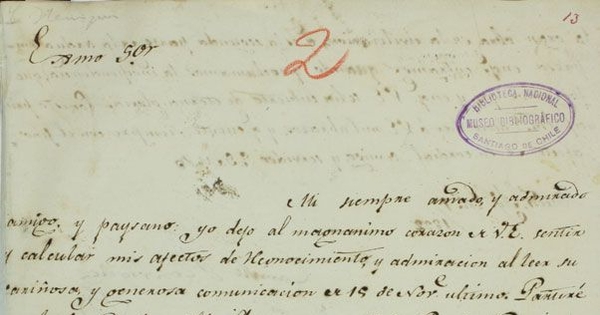 13
Exmo Sor
2
BIBLIOTECA NACIONAL
MUSEO BIBLIOGRÁFICO
SANTIAGO DE CHILE
Mi siempre amado, y admirado
amigo, y paysano: yo dejo al magnanimo corazon de V.E. sentir
y calcular mis afectos de Reconocimiento, y admiracion al leer su
cariñosa, y generosa comunicacion de 15 de Nove. ultimo. Partiré